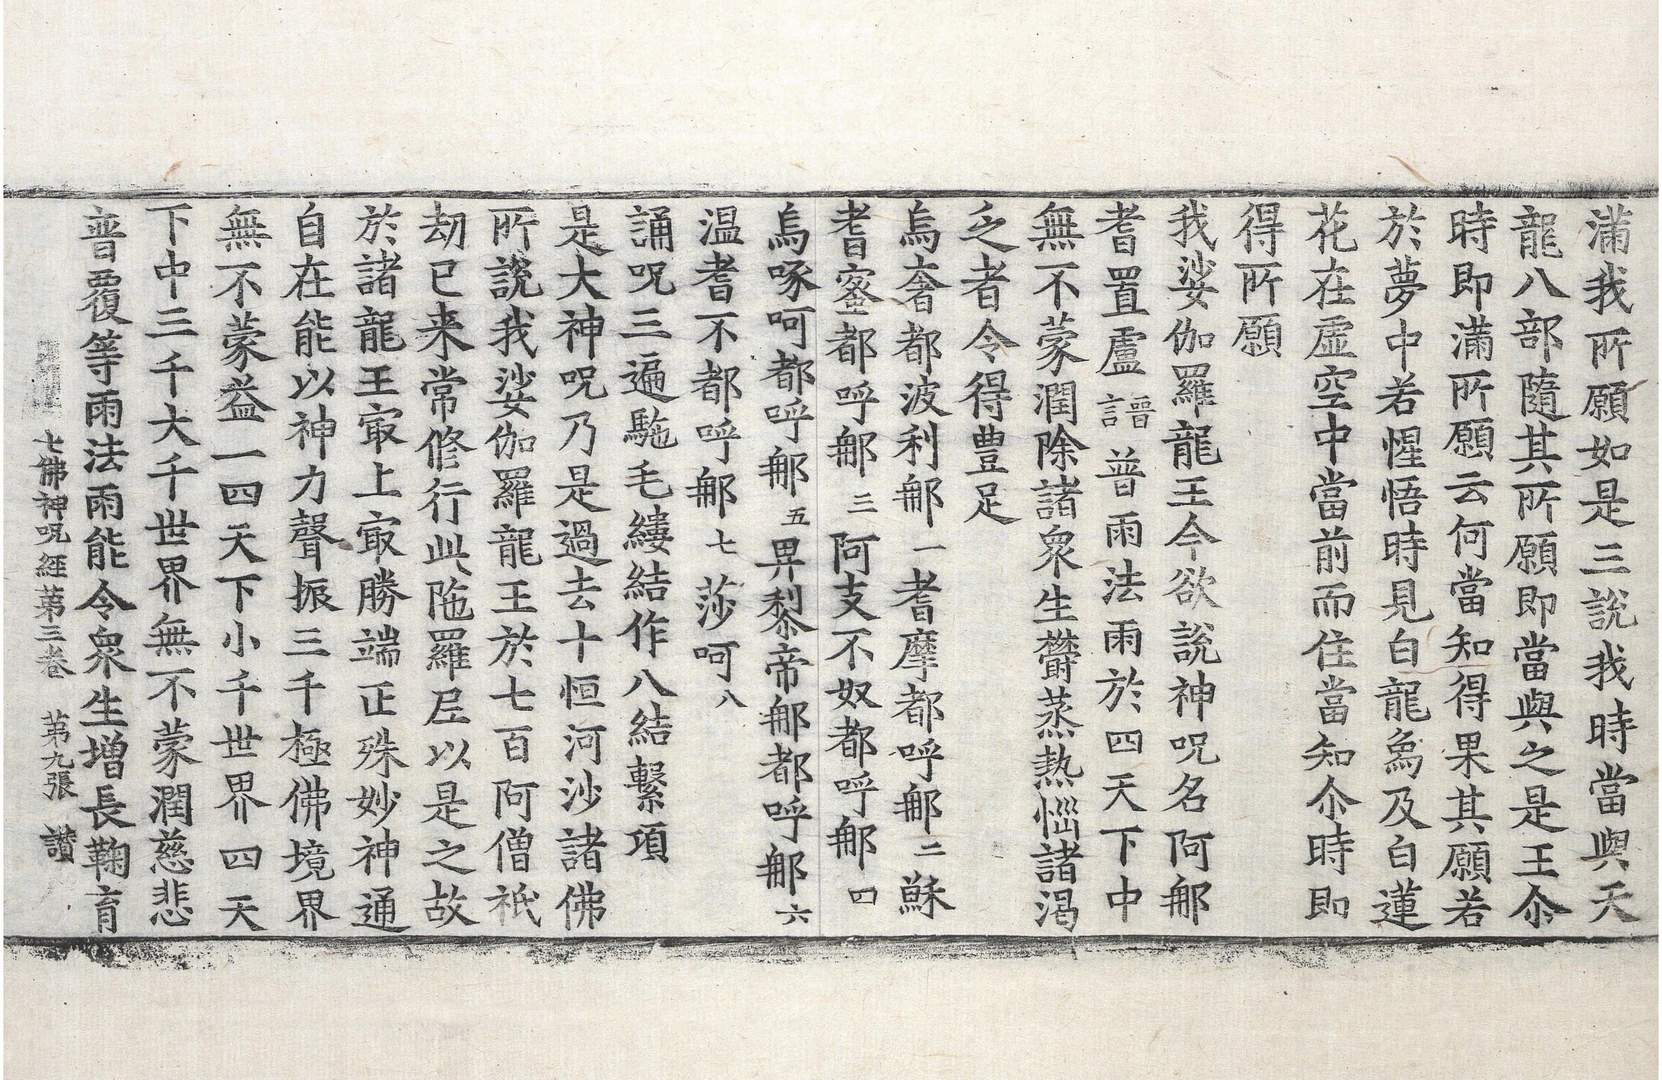 滿我所願如是三說我時當與天
龍八部隨其所願即當與之是王尒
時即滿所願云何當知得果其願若
於夢中若惺悟時見白龍烏及白蓮
花在虛空中當前而住當知尒時即
得所願
我娑伽羅龍王今欲說神呪名阿那
耆置盧 晉言 普雨法雨於四天下中
無不蒙潤除諸衆生欝蒸熱惱諸渴
乏者令得豊足
烏奢都波利那 一 耆摩都呼那 二 蘇
耆蜜都呼那 三 阿支不奴都呼那 四
烏啄呵都呼那 五 畀黎帝那都呼那 六
温耆不都呼那 七 莎呵 八
誦呪三遍駞毛縷結作八結繫項
是大神呪乃是過去十恒河沙諸佛
所說我娑伽羅龍王於七百阿僧祇
劫已来常修行此陁羅尼以是之故
於諸龍王㝡上㝡勝端正殊妙神通
自在能以神力聲振三千極佛境界
無不蒙益一四天下小千世界四天
下中三千大千世界無不蒙潤慈悲
普覆等雨法雨能令衆生增長鞠育
七佛神呪經第三卷 第九張 讃